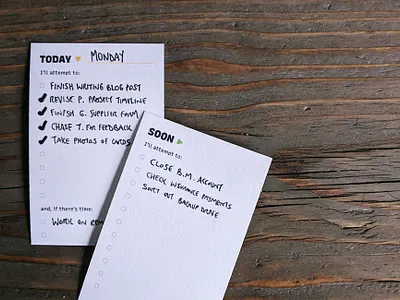 TODAY MONDAY
I'll attempt to:
FINISH WRITING BLOG POST
REVISE P. PROJECT TIMELINE
FINISH G. SUPPLIER FORM
CHASE T. FOR FEEDBACK
TAKE PHOTOS OF CARDS
and, if there's time:
WORK ON
SOON
I'll attempt to:
CLOSE B.M. ACCOUNT
CHECK INSURANCE PAYMENTS
SORT OUT BACKUP DRIVE